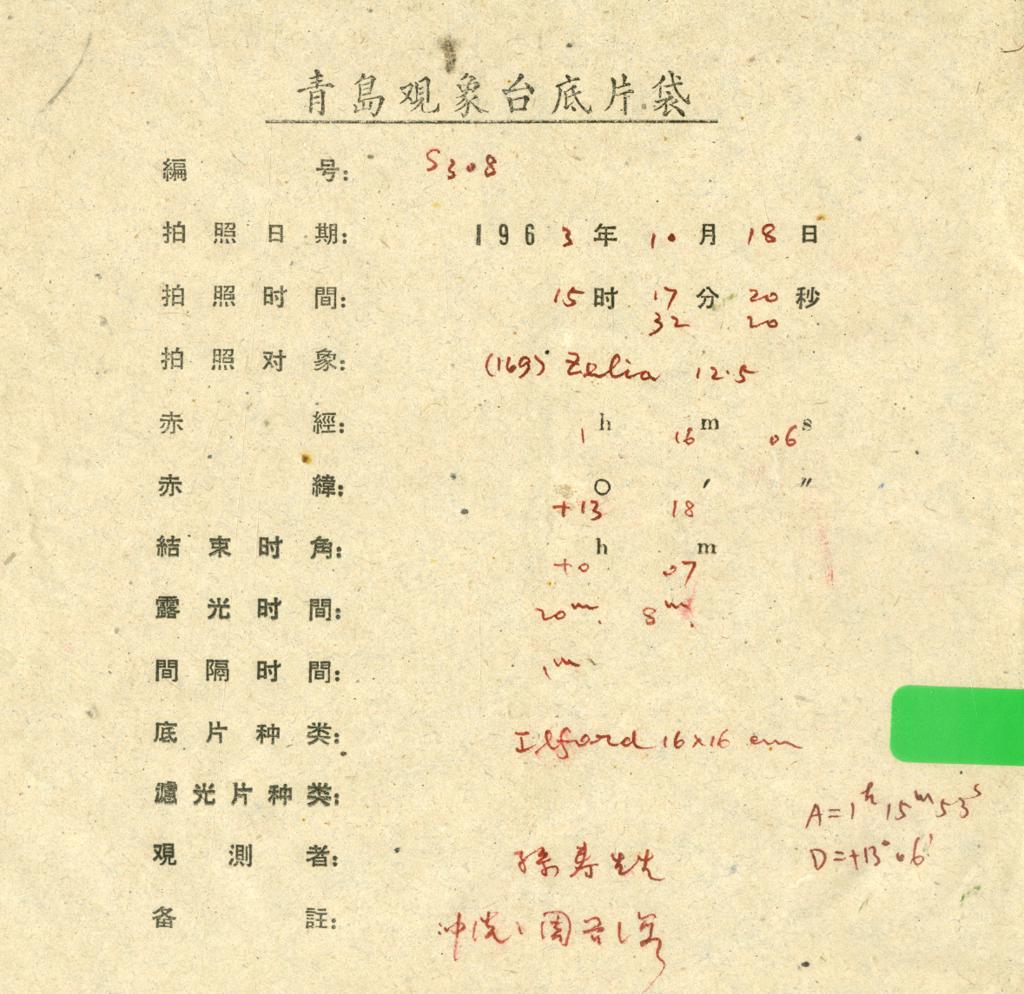 青島观象台底片袋
編号: S308
拍照日期: 1963年10月18日
拍照时間: 15时17分20秒
32 20
拍照对象: (169) Zelia 12.5
赤經: 1h 16m 06s
赤緯: +13° 18′ ″
結束时角: +0h 07m
露光时間: 20m. 8m.
間隔时間: 1m
底片种类: Ilford 16×16 cm
濾光片种类:
A=1h 15m 53s
观測者: 孫寿
D=+13°06′
备註: 冲洗: 周